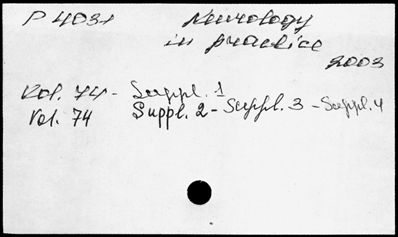 P 4031 Neurology
in practice
2003
Vol. 74 - Suppl. 1
Vol. 74 Suppl. 2 - Suppl. 3 - Suppl. 4